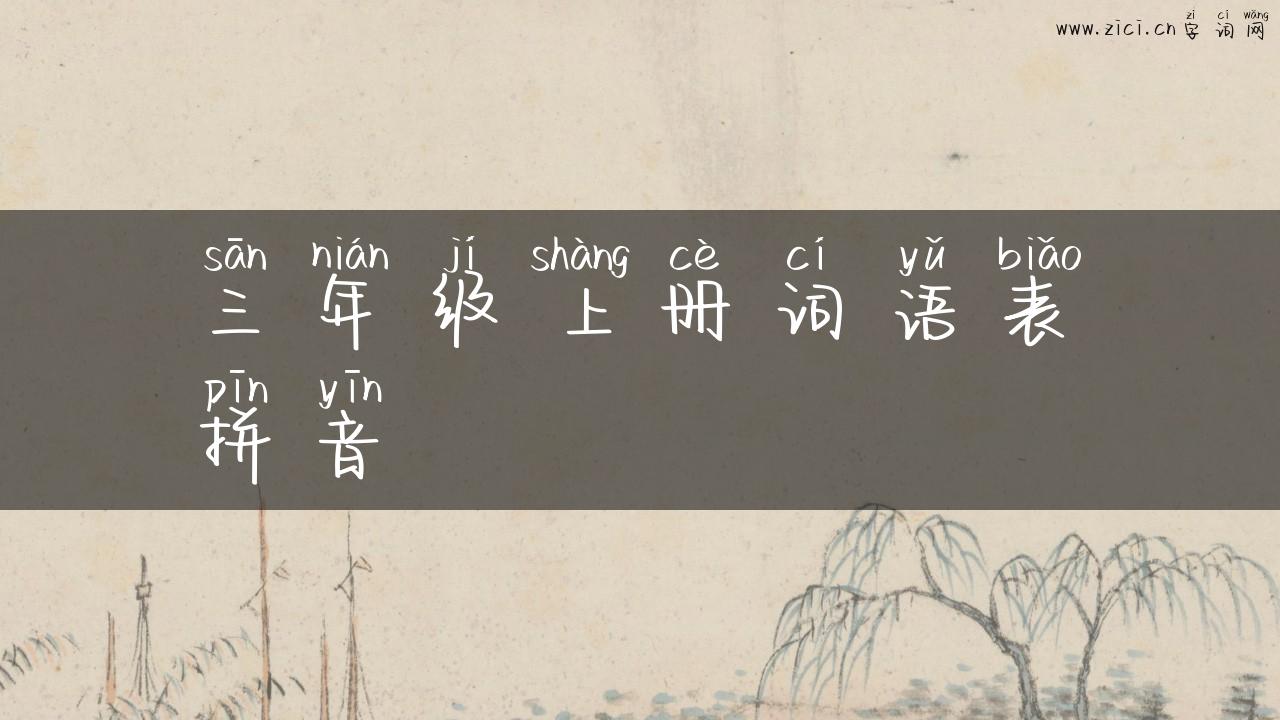 zì cí wǎng
www.zici.cn 字词网
sān nián jí shàng cè cí yǔ biǎo
三年级上册词语表
pīn yīn
拼音